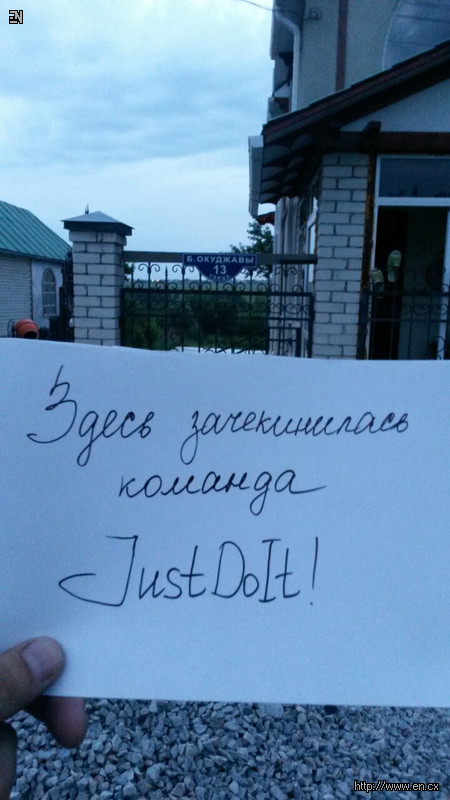 EN
Б. ОКУДЖАВЫ
13
Здесь зачекинилась
команда
JustDoIt!
http://www.en.cx